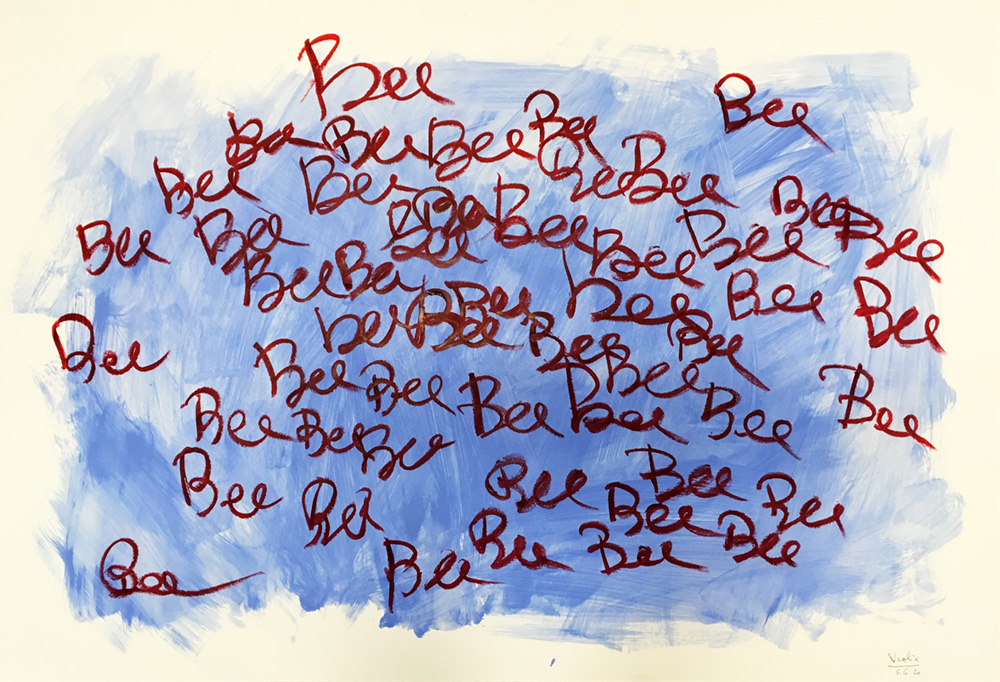 Bee Bee
Bee Bee Bee Bee
Bee Bee Bee Bee
Bee Bee
Bee Bee Bee Bee Bee Bee
Bee Bee Bee
Bee Bee Bee
Bee Bee Bee
Bee Bee Bee
Bee Bee Bee
Bee Bee Bee Bee Bee Bee Bee
Bee Bee Bee
Bee Bee Bee
Bee Bee Bee
Bee Bee